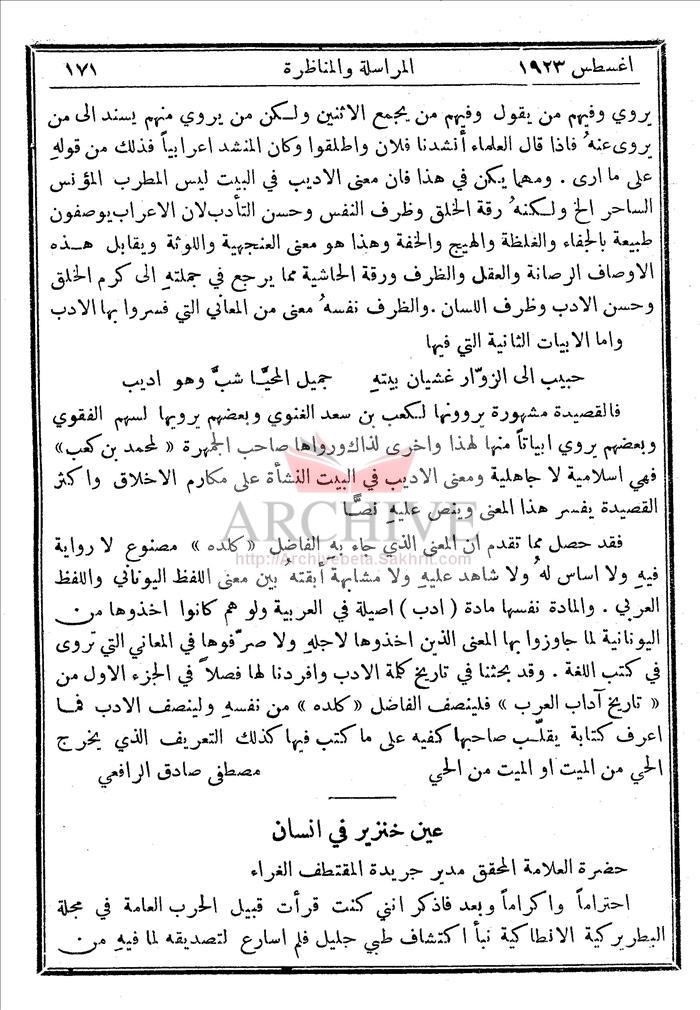 اغسطس ١٩٢٣ المراسلة والمناظرة ١٧١
يروي وفيهم من يقول وفيهم من يجمع الاثنين ولكن من يروي منهم يسند الى من
يروى عنهُ فاذا قال العلماء أنشدنا فلان واطلقوا وكان المنشد اعرابياً فذلك من قولهِ
على ما ارى . ومهما يكن في هذا فان معنى الاديب في البيت ليس المطرب المؤنس
الساحر الخ ولكنهُ رقة الخلق وظرف النفس وحسن التأدب لان الاعراب يوصفون
طبيعة بالجفاء والغلظة والهيج والخفة وهذا هو معنى العنجهية واللوثة ويقابل هذه
الاوصاف الرصانة والعقل والظرف ورقة الحاشية مما يرجع في جملتهِ الى كرم الخلق
وحسن الادب وظرف اللسان . والظرف نفسهُ معنى من المعاني التي فسروا بها الادب
واما الابيات الثانية التي فيها
حبيب الى الزوّار غشيان بيتهِ جميل المحيّا شبَّ وهو اديب
فالقصيدة مشهورة يروونها لكعب بن سعد الغنوي وبعضهم يرويها لسهم الفقوي
وبعضهم يروي ابياتاً منها لهذا واخرى لذاك ورواها صاحب الجمهرة « لمحمد بن كعب »
فهي اسلامية لا جاهلية ومعنى الاديب في البيت النشأة على مكارم الاخلاق واكثر
القصيدة يفسر هذا المعنى وينص عليهِ نصًّا
ARCHIVE
http://Archivebeta.Sakhrit.com
فقد حصل مما تقدم ان المعنى الذي جاء بهِ الفاضل « كلده » مصنوع لا رواية
فيهِ ولا اساس لهُ ولا شاهد عليهِ ولا مشابهة أبقتهُ بين معنى اللفظ اليوناني واللفظ
العربي . والمادة نفسها مادة ( ادب ) اصيلة في العربية ولو هم كانوا اخذوها من
اليونانية لما جاوزوا بها المعنى الذين اخذوها لاجلهِ ولا صرّفوها في المعاني التي تروى
في كتب اللغة . وقد بحثنا في تاريخ كلمة الادب وافردنا لها فصلاً في الجزء الاول من
« تاريخ آداب العرب » فلينصف الفاضل « كلده » من نفسهِ ولينصف الادب فما
اعرف كتابة يقلّب صاحبها كفيه على ما كتب فيها كذلك التعريف الذي يخرج
الحي من الميت او الميت من الحي مصطفى صادق الرافعي
عين خنزير في انسان
حضرة العلامة المحقق مدير جريدة المقتطف الغراء
احتراماً واكراماً وبعد فاذكر انني كنت قرأت قبيل الحرب العامة في مجلة
البطريركية الانطاكية نبأ اكتشاف طبي جليل فلم اسارع لتصديقه لما فيهِ من